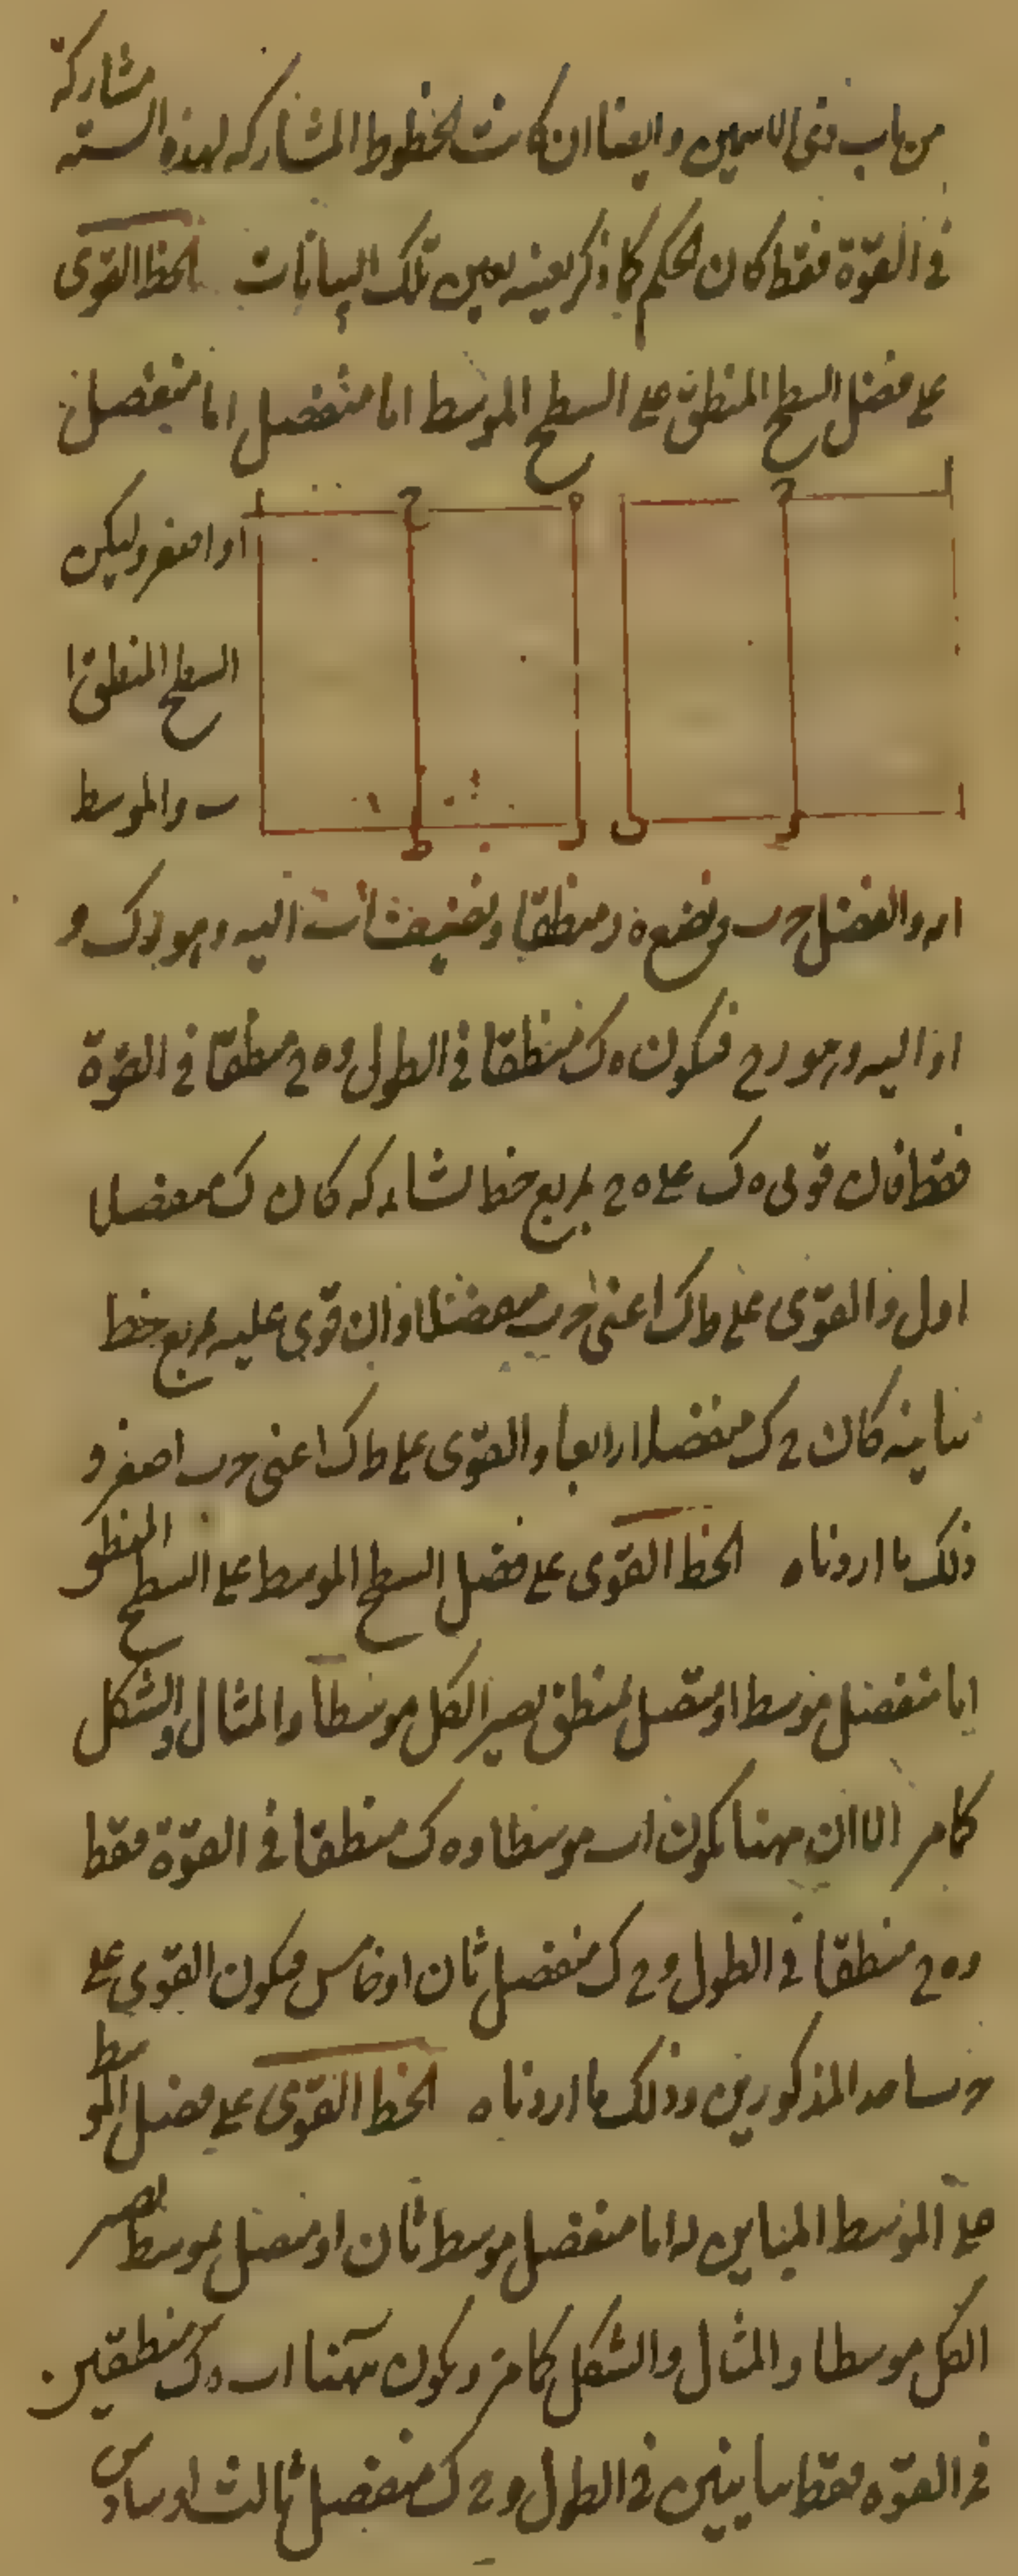 من باب ذى الاسمين وايضا ان كانت الخطوط المشاركه لهذه الستة مشاركة
فى القوّة فقط كان الحكم كما ذكر بعينه بعين تلك البيانات الخط القوى
على فضل السطح المنطق على السطح الموسط اما منفصل اما منفصل
او اصغر وليكن
السطح المنطق ا
ب والموسط
اه والفضل حـ ب ونضع ه ر منطقا ونضيف اب اليه وهو ر ك و
اه اليه وهو ر ح فيكون ه ك منطقا فى الطول و ه ح منطقا فى القوّة
فقط فان قوى ه ك على ه ح بمربع خط يشاركه كان ك منفصلا
اول والقوّى على ط ك اعنى حـ ب منفصلا وان قوى عليه بمربع خط
يباينه كان ح ك منفصلا رابعا والقوّى على ط ك اعنى حـ ب اصغر و
ذلك ما اردناه الخط القوّى على فضل السطح الموسط على السطح المنطق
اما منفصل موسط او متصل بمنطق يصير الكل موسطا والمثال والشكل
كما مر الا ان ههنا يكون اب موسطا و ه ك منطقا فى القوّة فقط
و ه ح منطقا فى الطول و ح ك منفصل ثان او خامس فيكون القوى على
حـ ب احد المذكورين وذلك ما اردناه الخط القوّى على فضل الموسط
على الموسط المباين له اما منفصل موسط ثان او متصل بموسط يصير
الكل موسطا والمثال والشكل كما مر ويكون ههنا اب ه ك منطقين
فى القوّه فقط متباينين فى الطول و ح ك منفصل ثالث او سادس